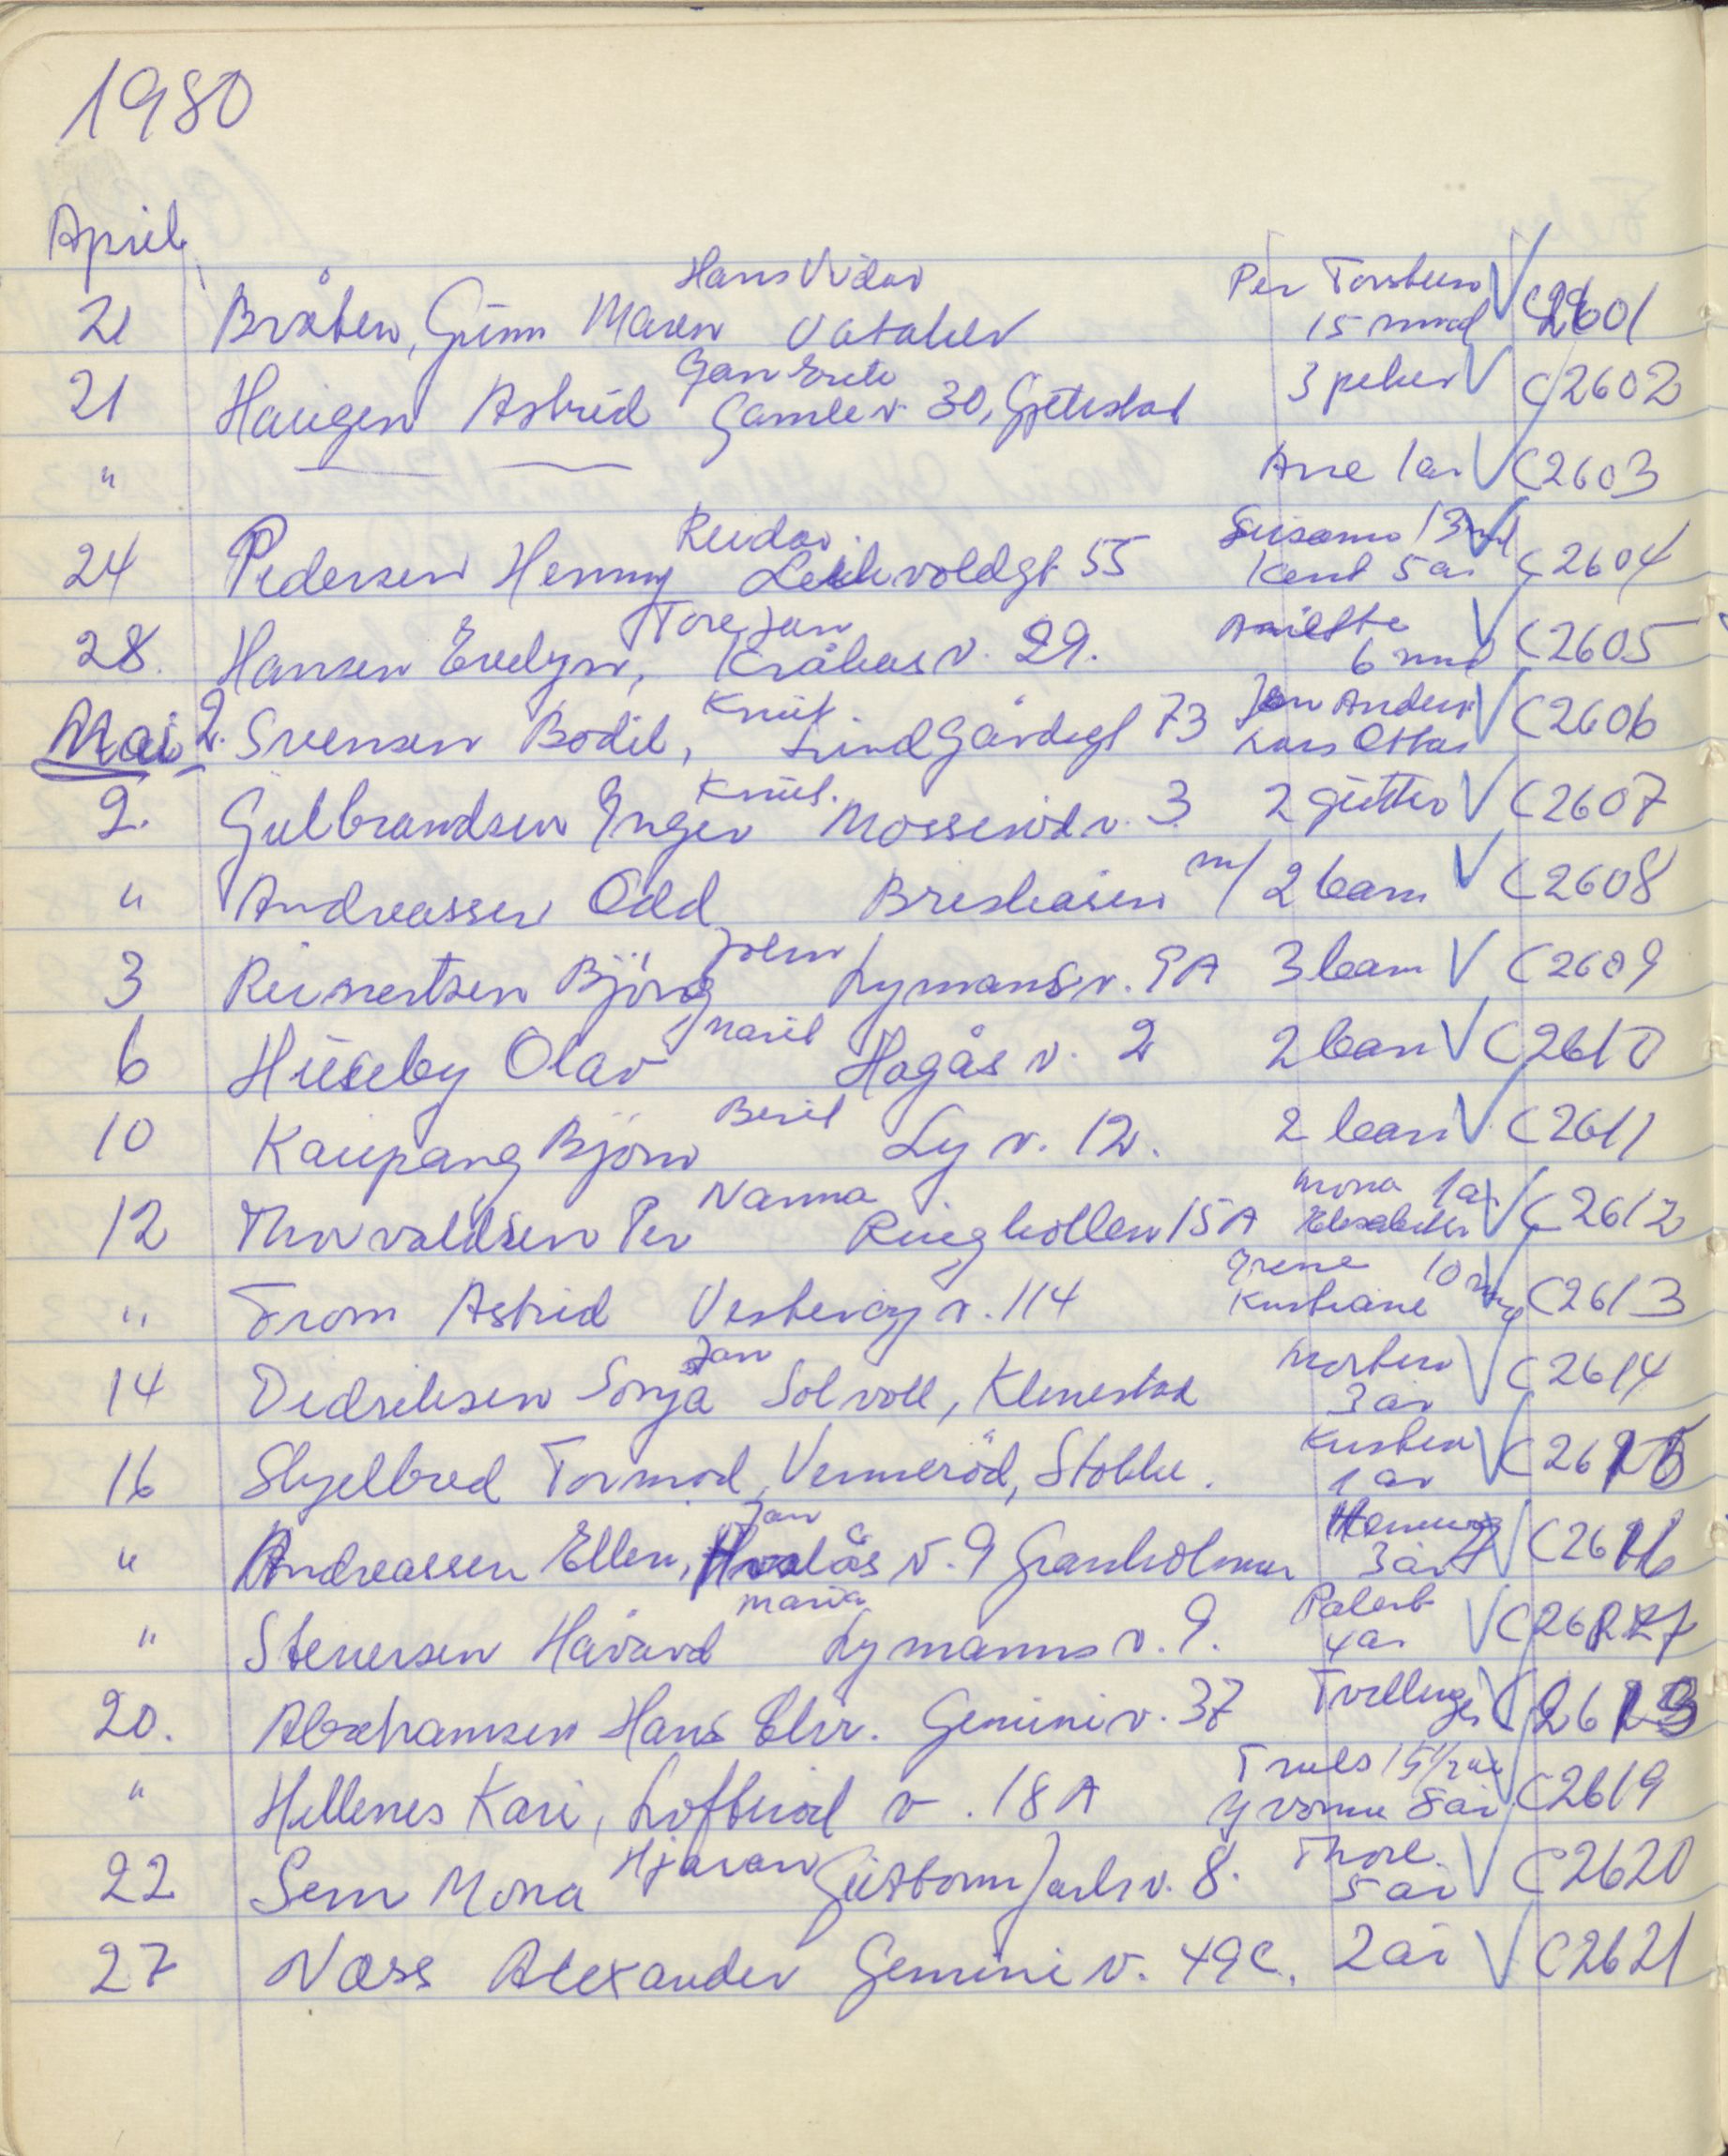 1980
April
Hans Vidar Per Torstein
21 Bråten, Gunn Maren Vataker 15 mnd C2601
Jan Erik
21 Haugen Astrid Gamle v. 30, Gjetestad 3 piker C2602
" Ane 1 år C2603
Reidar. Susann 13 mnd
24 Pedersen Henny Leikvoldgt 55 Kent 5 år C2604
Tore Jan Anette
28. Hansen Evelyn, Kråkås v. 29. 6 mnd C2605
Knut. Jon Anders
Mai 2. Svensen Bodil, Lindgårdsgt 73 Lars Ottar C2606
Knut.
2. Gulbrandsen Inger Mosserød v. 3 2 gutter C2607
" Andreassen Odd Breskåsen m/ 2 barn C2608
John
3 Reinertsen Björg Lymanns v. 9A 3 barn C2609
Marit
6 Huseby Olav Hagås v. 2 2 barn C2610
Berit
10 Kaupang Björn Ly v. 12. 2 barn C2611
Nanna Mona 1 år
12 Thorvaldsen Per Ringkollen 15A Elisabeth C2612
Irene 10 mnd
" From Astrid Vesterøy v. 114 Kristiane C2613
Jan Morten
14 Dedriksen Sonja Solvoll, Klinestad 3 år C2614
Kirsten
16 Skjelbred Tormod, Vennerød, Stokke. 1 år C2615
Jan Henning
" Andreassen Ellen, Hvalås v. 9 Granholmen 3 år C2616
Maria
" Stenersen Håvard Lymanns v. 9. 4 år C2617
20. Abrahamsen Hans Chr. Gemini v. 37 Tvillinger C2618
Truls 1 5 1/2 år
" Hellenes Kari, Lofterød v. 18 A Yvonne 8 år C2619
Hjaran Thore.
22 Sem Mona Guttorm Jarls v. 8. 5 år C2620
27 Næss Alexander Gemini v. 49C. 2 år C2621